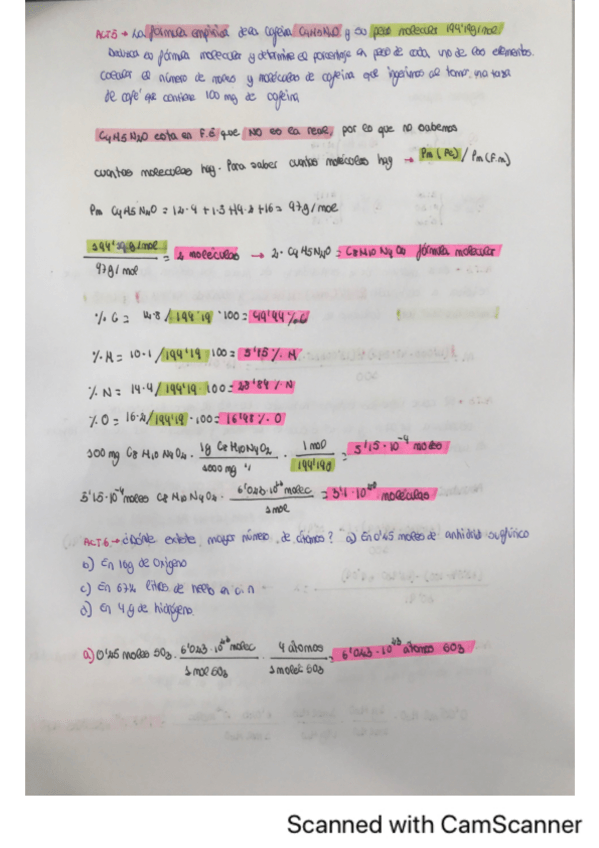 ACT 5 → La fórmula empírica de la cafeína C4H5N2O y su peso molecular 194'19g/mol
Deduzca su fórmula molecular y determine el porcentaje en peso de cada uno de sus elementos.
Calcular el número de moles y moléculas de cafeína que ingerimos al tomar una taza
de café que contiene 100 mg de cafeína
C4H5N2O esta en F.E que NO es la real, por lo que no sabemos
cuantas moleculas hay. Para saber cuantas moléculas hay → Pm (Pe) / Pm (F.m)
Pm C4H5N2O = 12·4 + 1·5 + 14·2 + 16 = 97g/mol
194'19g/mol / 97g/mol = 2 moléculas → 2 · C4H5N2O = C8H10N4O2 fórmula molecular
% C = 12·8 / 194'19 · 100 = 49'44 % C
% H = 10·1 / 194'19 · 100 = 5'15 % H
% N = 14·4 / 194'19 · 100 = 28'84 % N
% O = 16·2 / 194'19 · 100 = 16'48 % O
100 mg C8H10N4O2 · 1g C8H10N4O2 / 1000 mg " · 1 mol / 194'19g = 5'15 · 10⁻⁴ moles
5'15·10⁻⁴ moles C8H10N4O2 · 6'023·10²³ molec / 1 mol = 3'1 · 10²⁰ moléculas
ACT 6 → ¿Dónde existe mayor número de átomos? a) En 0'25 moles de anhídrido sulfúrico
b) En 16g de Oxígeno
c) En 67'2 litros de neon en c.n
d) En 4g de hidrógeno
a) 0'25 moles SO3 · 6'023·10²³ molec / 1 mol SO3 · 4 átomos / 1 molec SO3 = 6'023 · 10²³ átomos SO3
Scanned with CamScanner